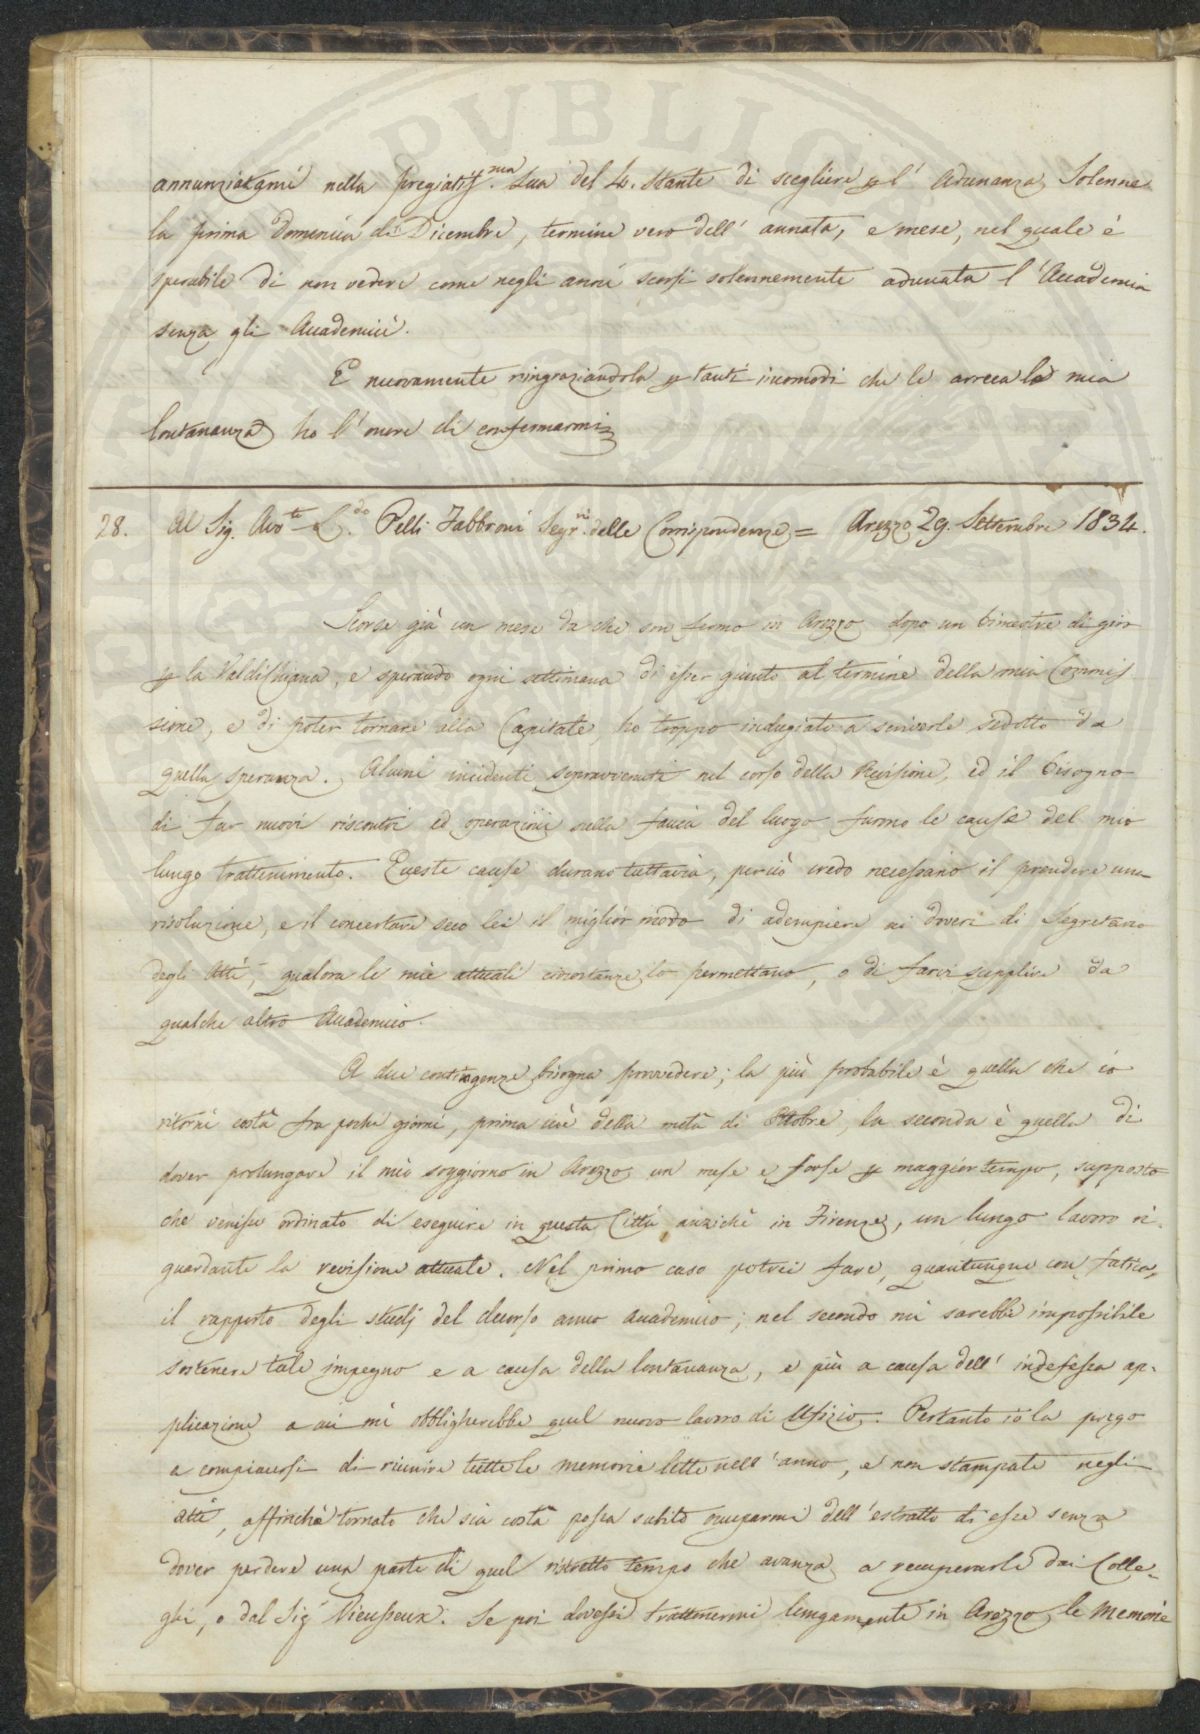 annunziatami nella pregiatiss.ma Sua del 4. stante di scegliere p l' Adunanza Solenne
la prima Domenica di Dicembre, termine vero dell' annata, e mese, nel quale è
sperabile di non vedere come negli anni scorsi solennemente adunata l' Accademia
senza gli Accademici.
E nuovamente ringraziandola p tanti incomodi che le arreca la mia
lontananza ho l' onore di confermarmi
28. Al Sig. Avv.te L.do Pelli Fabbroni Segr.rio delle Corrispondenze = Arezzo 29. Settembre 1834.
Scorse già un mese da che son fermo in Arezzo dopo un bimestre di giro
p la Valdichiana, e sperando ogni settimana di esser giunto al termine della mia Commis
sione, e di poter tornare alla Capitale, ho troppo indugiato a scriverle sedotto da
quella speranza. Alcuni incidenti sopravvenuti nel corso della Revisione, ed il bisogno
di far nuovi riscontri ed operazioni sulla faccia del luogo furono le cause del mio
lungo trattenimento. Queste cause durano tuttavia, perciò credo necessario il prendere una
risoluzione, e il concertare seco lei il miglior modo di adempiere ai doveri di Segretario
degli Atti, qualora le mie attuali circostanze lo permettano, o di farvi supplire da
qualche altro Accademico.
A due contingenze bisogna provvedere; la più probabile è quella che io
ritorni costà fra pochi giorni, prima cioè della metà di Ottobre, la seconda è quella di
dover prolungare il mio soggiorno in Arezzo un mese e forse p maggior tempo, supposto
che venisse ordinato di eseguire in questa Città, anzichè in Firenze, un lungo lavoro ri-
guardante la revisione attuale. Nel primo caso potrei fare, quantunque con fatica,
il rapporto degli studj del decorso anno accademico; nel secondo mi sarebbe impossibile
sostenere tale impegno e a causa della lontananza, e più a causa dell' indefessa ap-
plicazione a cui mi obbligherebbe quel nuovo lavoro di Ufizio. Pertanto io la prego
a compiacersi di riunire tutte le memorie lette nell' anno, e non stampate negli
atti, affinchè tornato che sia costà possa subito occuparmi dell' estratto di esse senza
dover perdere una parte di quel ristretto tempo che avanza a recuperarle dai Colle-
ghi, o dal Sig.r Vieusseux. Se poi dovessi trattenermi lungamente in Arezzo le Memorie